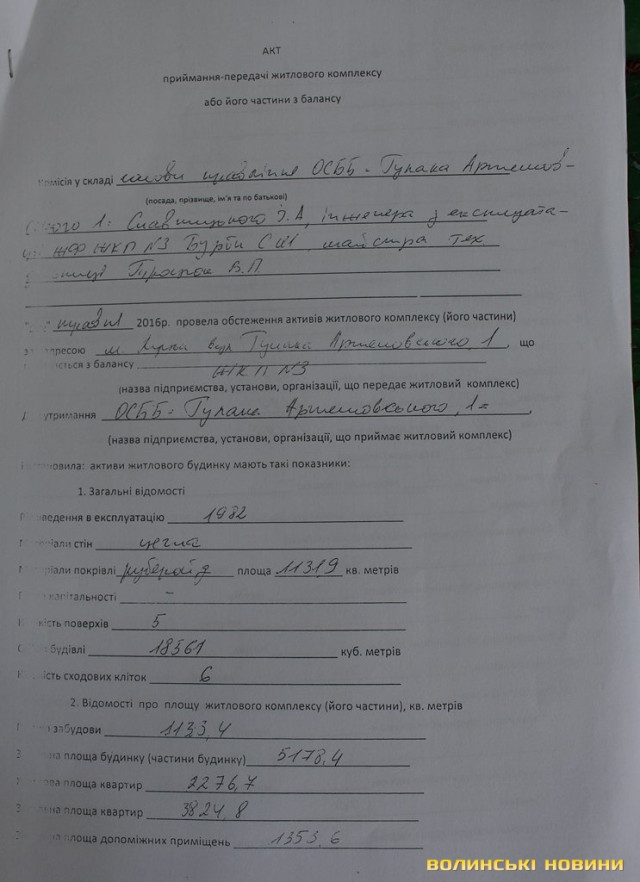 АКТ
приймання-передачі житлового комплексу
або його частини з балансу
комісія у складі голови правління ОСББ "Гулака Артемов-
(посада, прізвище, ім'я та по батькові)
ського 1" Славицького І.А, інженера з експлуата-
ЖФ ЖКП №3 Бурби С.М, майстра тех
В.П
2016р. провела обстеження активів житлового комплексу (його частини)
адресою м. вул Гулака Артемовського, 1, що
ється з балансу ЖКП №3
(назва підприємства, установи, організації, що передає житловий комплекс)
утримання ОСББ "Гулака Артемовського, 1"
(назва підприємства, установи, організації, що приймає житловий комплекс)
новила: активи житлового будинку мають такі показники:
1. Загальні відомості
ведення в експлуатацію 1982
ріали стін цегла
ріали покрівлі руберойд площа 1131,9 кв. метрів
капітальності –
кість поверхів 5
будівлі 18561 куб. метрів
кість сходових кліток 6
2. Відомості про площу житлового комплексу (його частини), кв. метрів
забудови 1133,4
на площа будинку (частини будинку) 5178,4
ва площа квартир 2276,7
на площа квартир 3824,8
на площа допоміжних приміщень 1353,6
ВОЛИНСЬКІ НОВИНИ